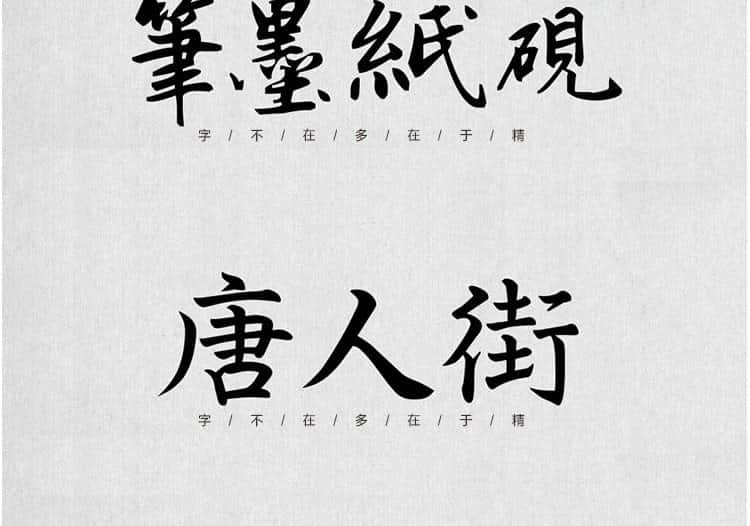 筆墨紙硯
字/不/在/多/在/于/精
唐人街
字/不/在/多/在/于/精